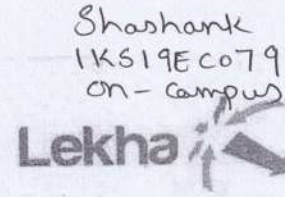 Shashank
1KS19EC079
on-campus
Lekha